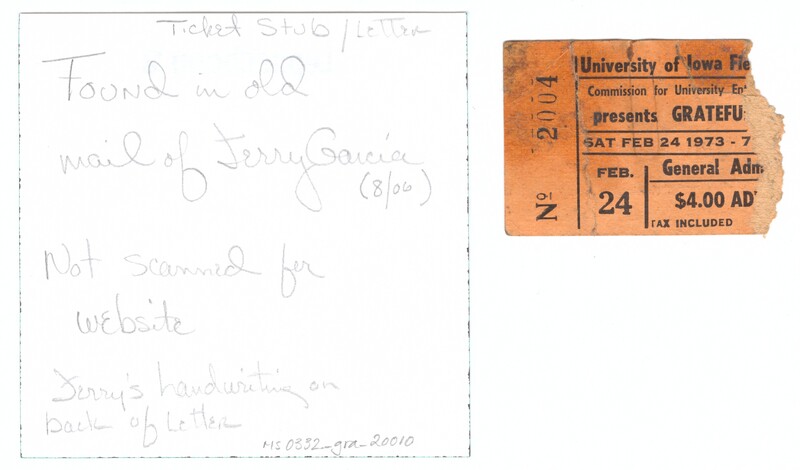 Ticket Stub / Letter
Found in old
mail of Jerry Garcia
(8/06)
Not scanned for
website
Jerry's handwriting on
back of Letter
MS0332_gra_20010
No 2004
University of Iowa Fie
Commission for University En
presents GRATEFU
SAT FEB 24 1973 - 7
FEB.
24
General Adm
$4.00 AD
TAX INCLUDED